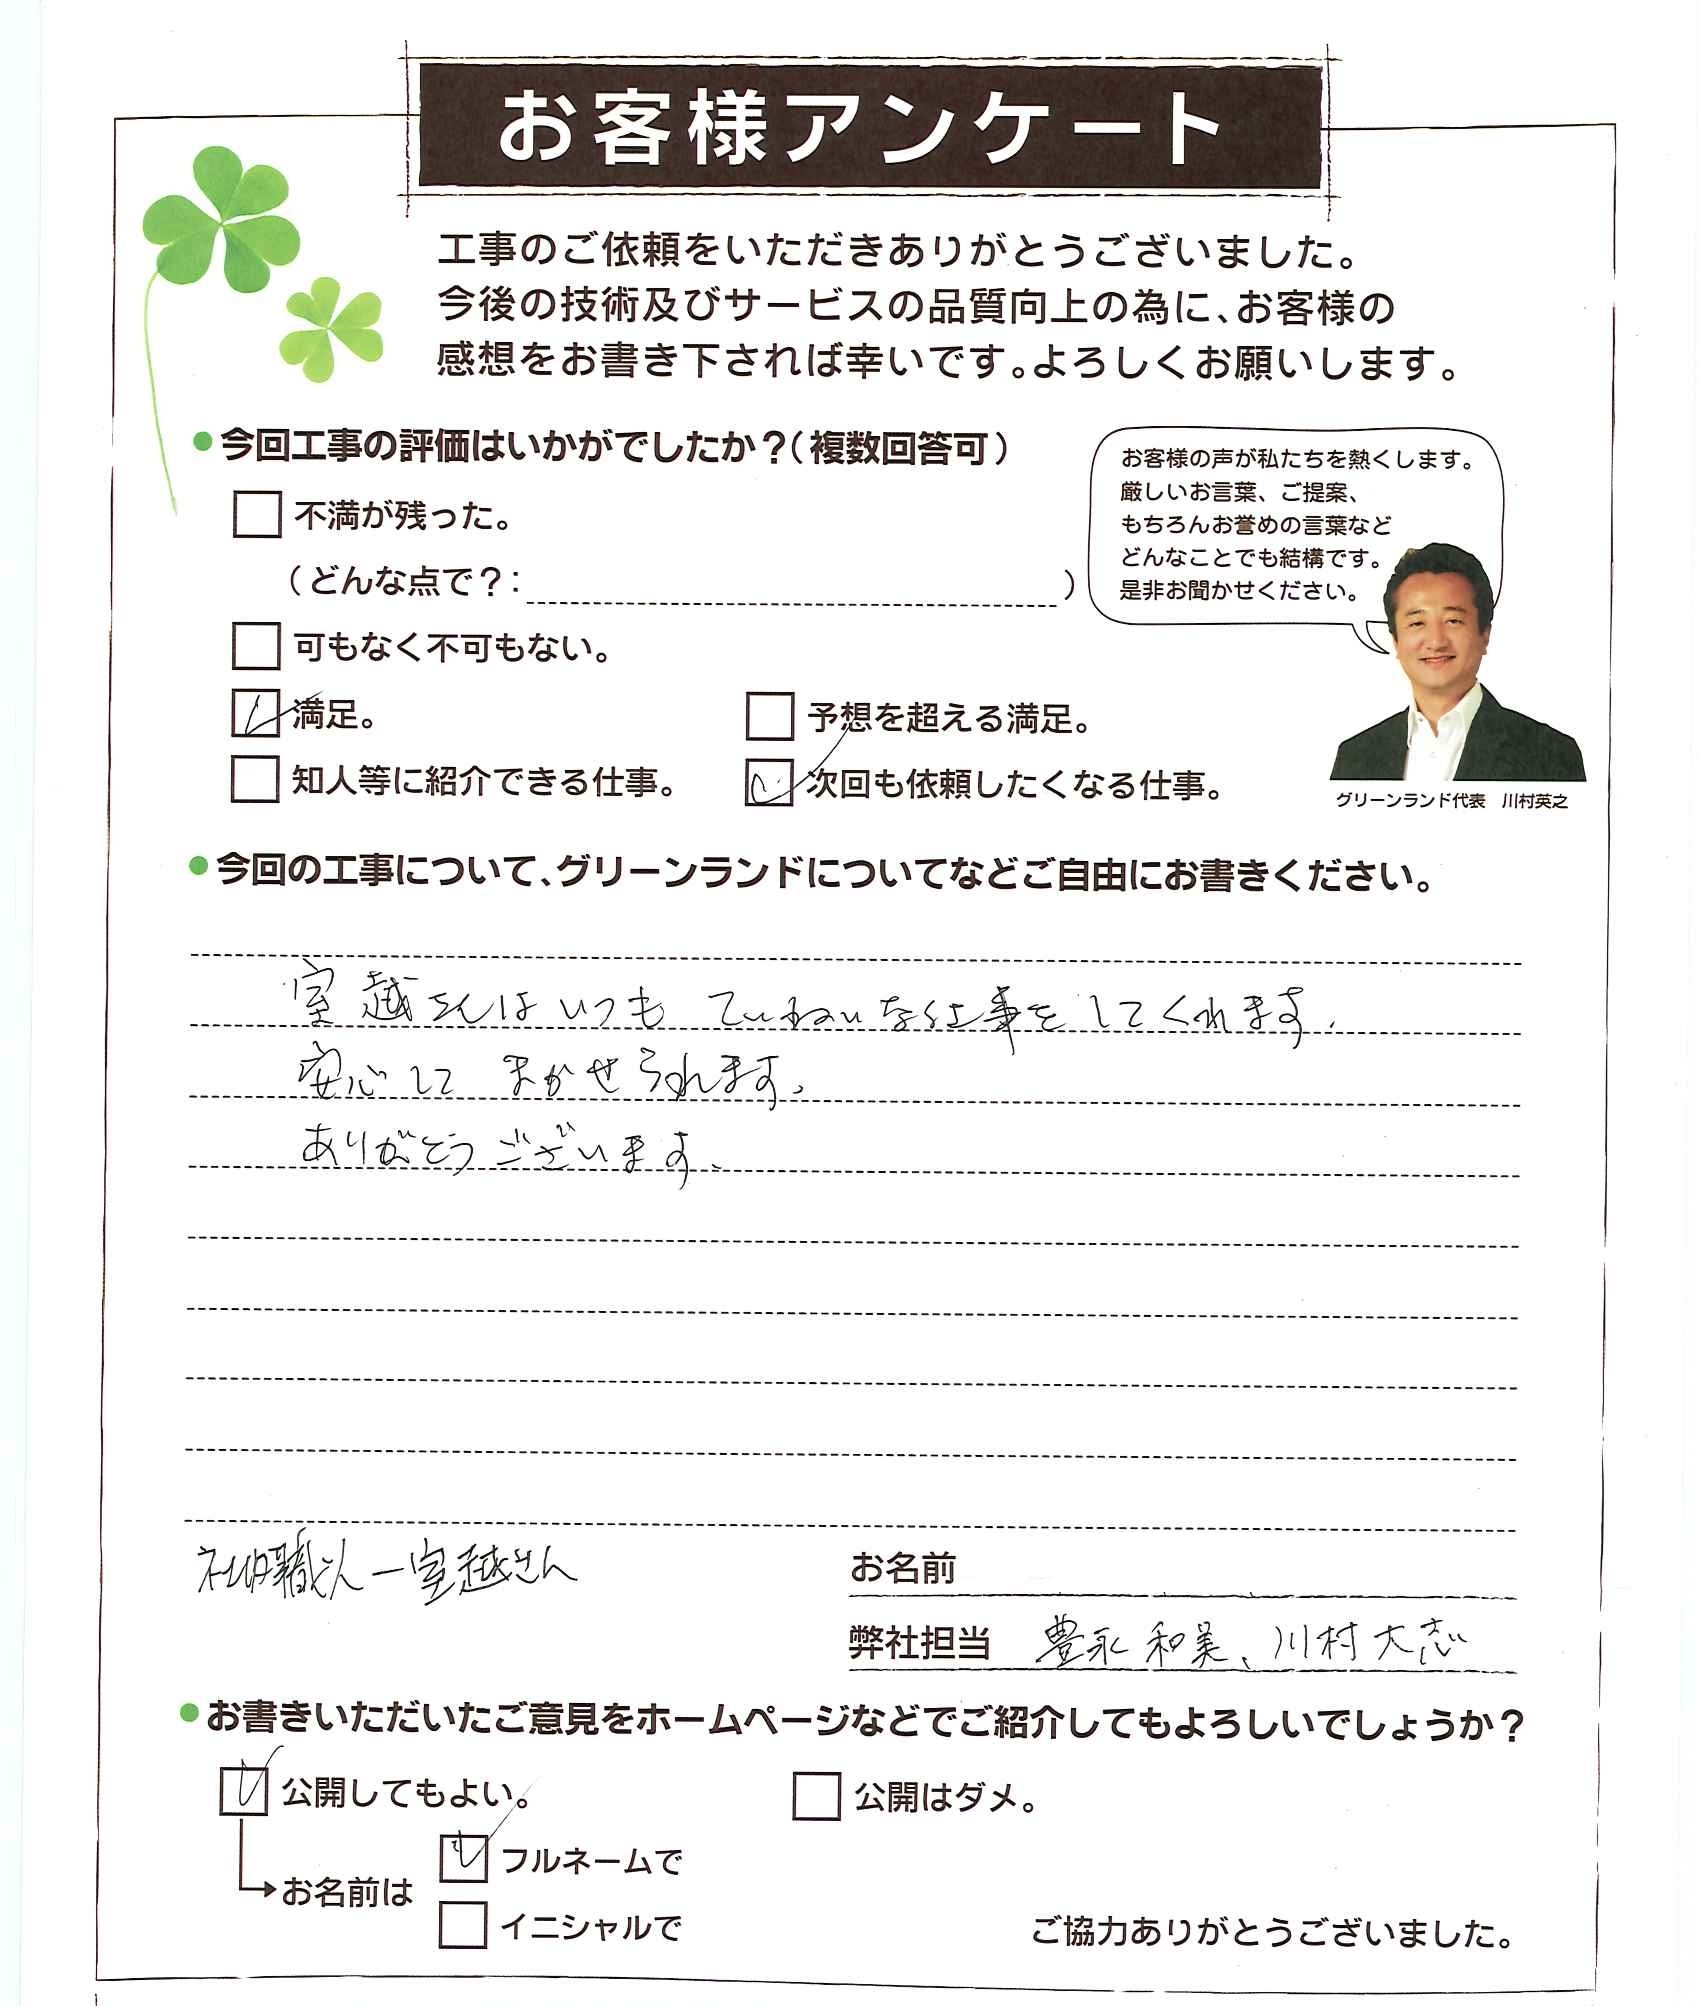 お客様アンケート
工事のご依頼をいただきありがとうございました。
今後の技術及びサービスの品質向上の為に、お客様の
感想をお書き下されば幸いです。よろしくお願いします。
●今回工事の評価はいかがでしたか？（複数回答可）
不満が残った。
（どんな点で？：　）
可もなく不可もない。
満足。
予想を超える満足。
知人等に紹介できる仕事。
次回も依頼したくなる仕事。
お客様の声が私たちを熱くします。
厳しいお言葉、ご提案、
もちろんお誉めの言葉など
どんなことでも結構です。
是非お聞かせください。
グリーンランド代表　川村英之
●今回の工事について、グリーンランドについてなどご自由にお書きください。
室越さんはいつも ていねいな仕事をしてくれます。
安心して まかせられます。
ありがとうございます。
社内職人－室越さん
お名前
弊社担当　豊永 和美、川村 大志
●お書きいただいたご意見をホームページなどでご紹介してもよろしいでしょうか？
公開してもよい。
公開はダメ。
お名前は
フルネームで
イニシャルで
ご協力ありがとうございました。